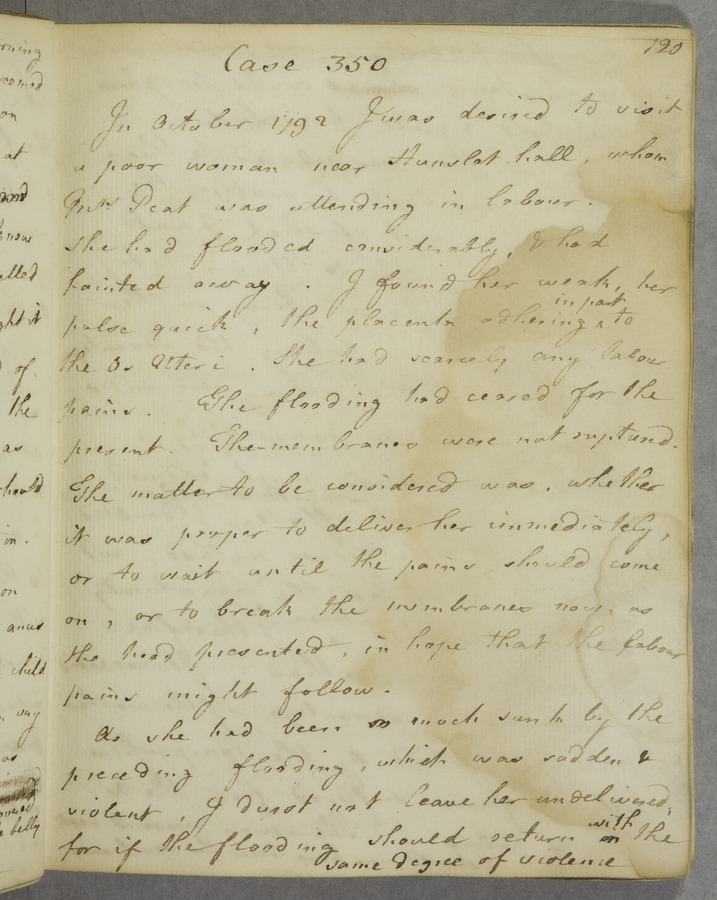 120
Case 350
In October 1792 I was desired to visit
a poor woman near Hunslet hall, whom
Mrs Peat was attending in labour.
She had flooded considerably, & had
fainted away. I found her weak, her
pulse quick, the placenta adhering ^ in part to
the Os Uteri. She had scarcely any labour
pains. The flooding had ceased for the
present. The membranes were not ruptured.
The matter to be considered was, whether
it was proper to deliver her immediately,
or to wait until the pains should come
on, or to break the membranes now, as
the head presented, in hope that the labour
pains might follow.
As she had been so much sunk by the
preceding flooding, which was sudden &
violent, I durst not leave her undelivered;
for if the flooding should return with the
same degree of violence
rning
on
at
know
elled
ght it
of
the
as
should
in.
on
anus
child
say
as
belly